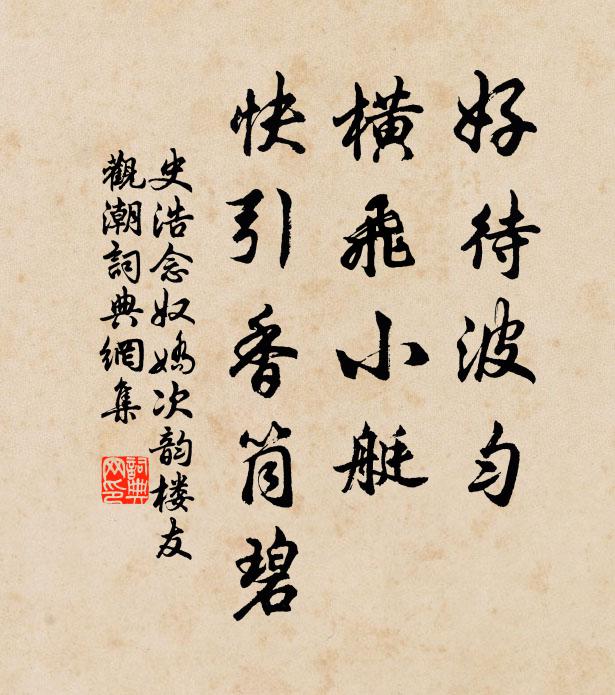 好待波匀
横飛小艇
快引香筒碧
史浩念奴嬌次韵楼友
觀潮詞典網集
詞典网印